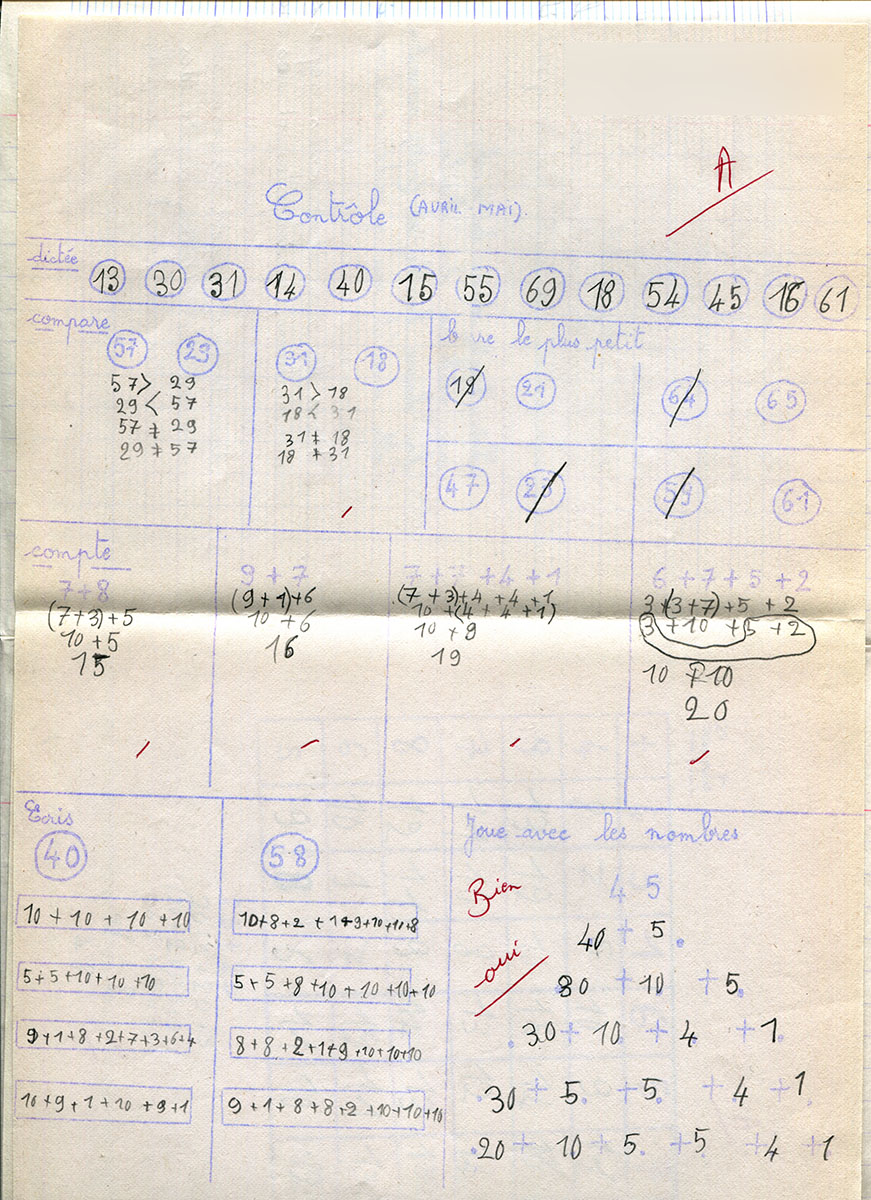 A
Contrôle (AVRIL MAI).
dictée
13 30 31 14 40 15 55 69 18 54 45 16 61
compare
57 29
57 > 29
29 < 57
57 ≠ 29
29 ≠ 57
31 18
31 > 18
18 < 31
31 ≠ 18
18 ≠ 31
le plus petit
19 21
64 65
47
61
compte
7+8
(7+3)+5
10+5
15
9+7
(9+1)+6
10+6
16
7+7+4+1
(7+3)+4+4+1
10+(4+4+1)
10+9
19
6+7+5+2
3+(3+7)+5+2
3+10+5+2
10+10
20
Ecris
40
10+10+10+10
5+5+10+10+10
9+1+8+2+7+3+6+4
10+9+1+10+9+1
58
10+8+2+1+9+10+10+8
5+5+8+10+10+10+10
8+8+2+1+9+10+10+10
9+1+8+8+2+10+10+10
Joue avec les nombres
Bien
oui
45
40 + 5.
30 + 10. + 5.
.30 + 10. + 4. + 1.
.30 + 5. + 5. + 4 + 1.
.20 + 10 + 5. + 5 + 4 + 1